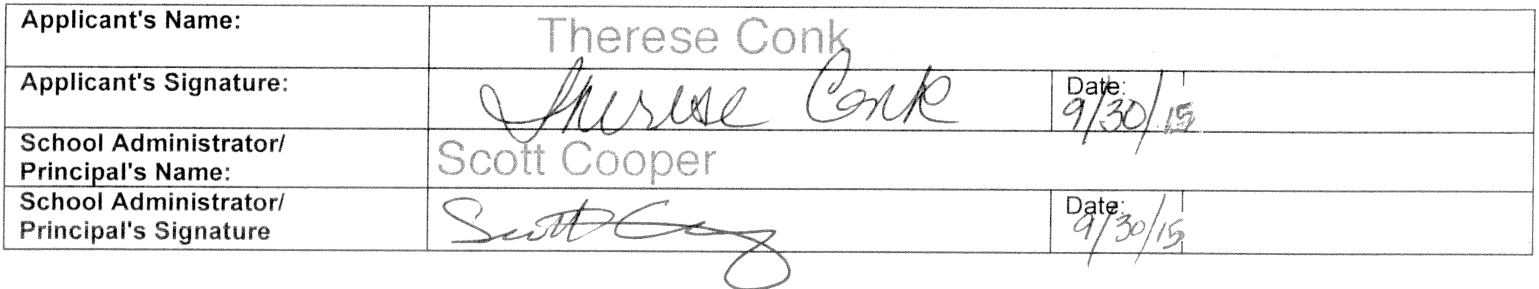 Applicant's Name: Therese Conk
Applicant's Signature: Therese Conk Date: 9/30/15
School Administrator/
Principal's Name: Scott Cooper
School Administrator/
Principal's Signature Scott Coop Date: 9/30/15